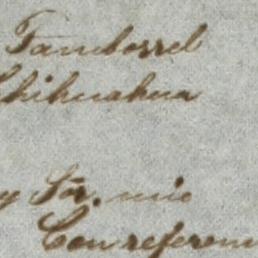 Tamborrel
Chihuahua
y Sr. mio
Con referen